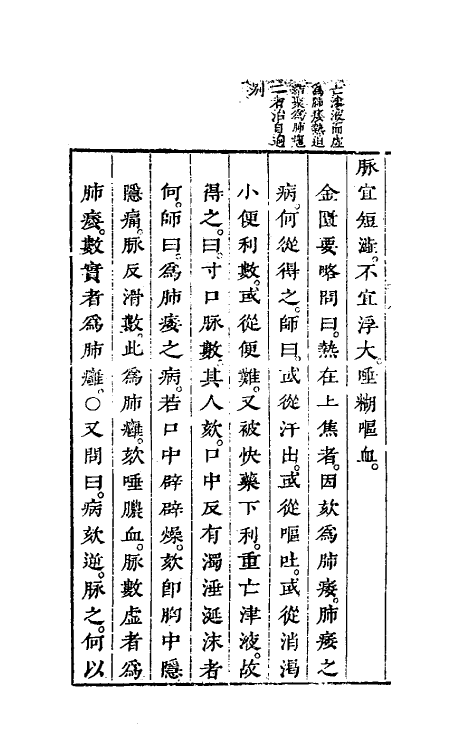 亡津液而虛
為肺痿熱迫
結聚為肺癰
二者治自逈
別
脉宜短濇。不宜浮大。唾糊嘔血。
金匱要略問曰。熱在上焦者。因欬為肺痿。肺痿之
病。何從得之。師曰。或從汗出。或從嘔吐。或從消渴
小便利數。或從便難。又被快藥下利。重亡津液。故
得之。曰。寸口脉數。其人欬。口中反有濁涶涎沫者
何。師曰。為肺痿之病。若口中辟辟燥。欬卽胸中隱
隱痛。脉反滑數。此為肺癰。欬唾膿血。脉數虛者為
肺痿。數實者為肺癰。○又問曰。病欬逆。脉之。何以